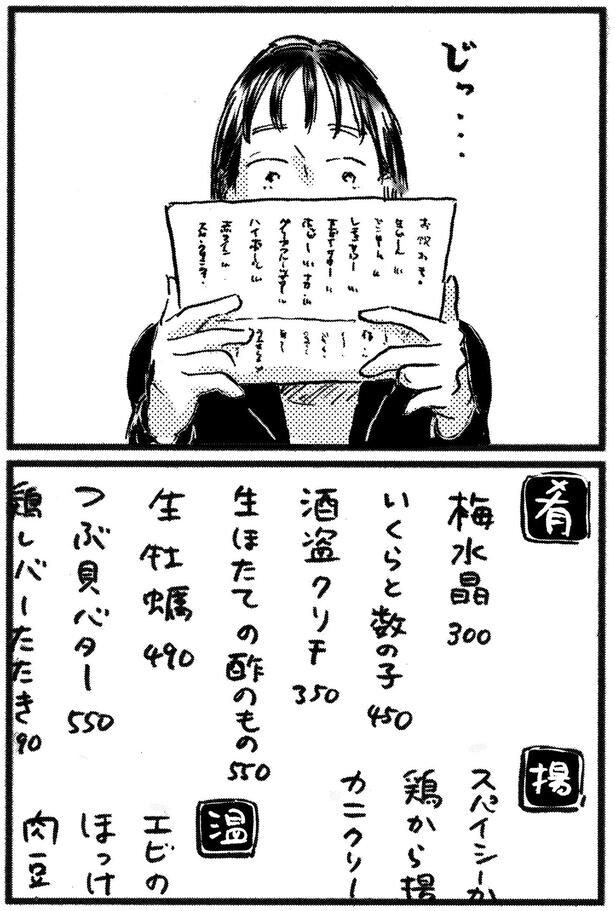 じっ・・・
お飲みもの
ハイボール
肴
梅水晶 300
いくらと数の子 450
酒盗クリチ 350
生ほたての酢のもの 550
生牡蠣 490
つぶ貝バター 550
鶏レバーたたき 90
揚
スパイシーか
鶏から揚
カニクリー
温
エビの
ほっけ
肉豆